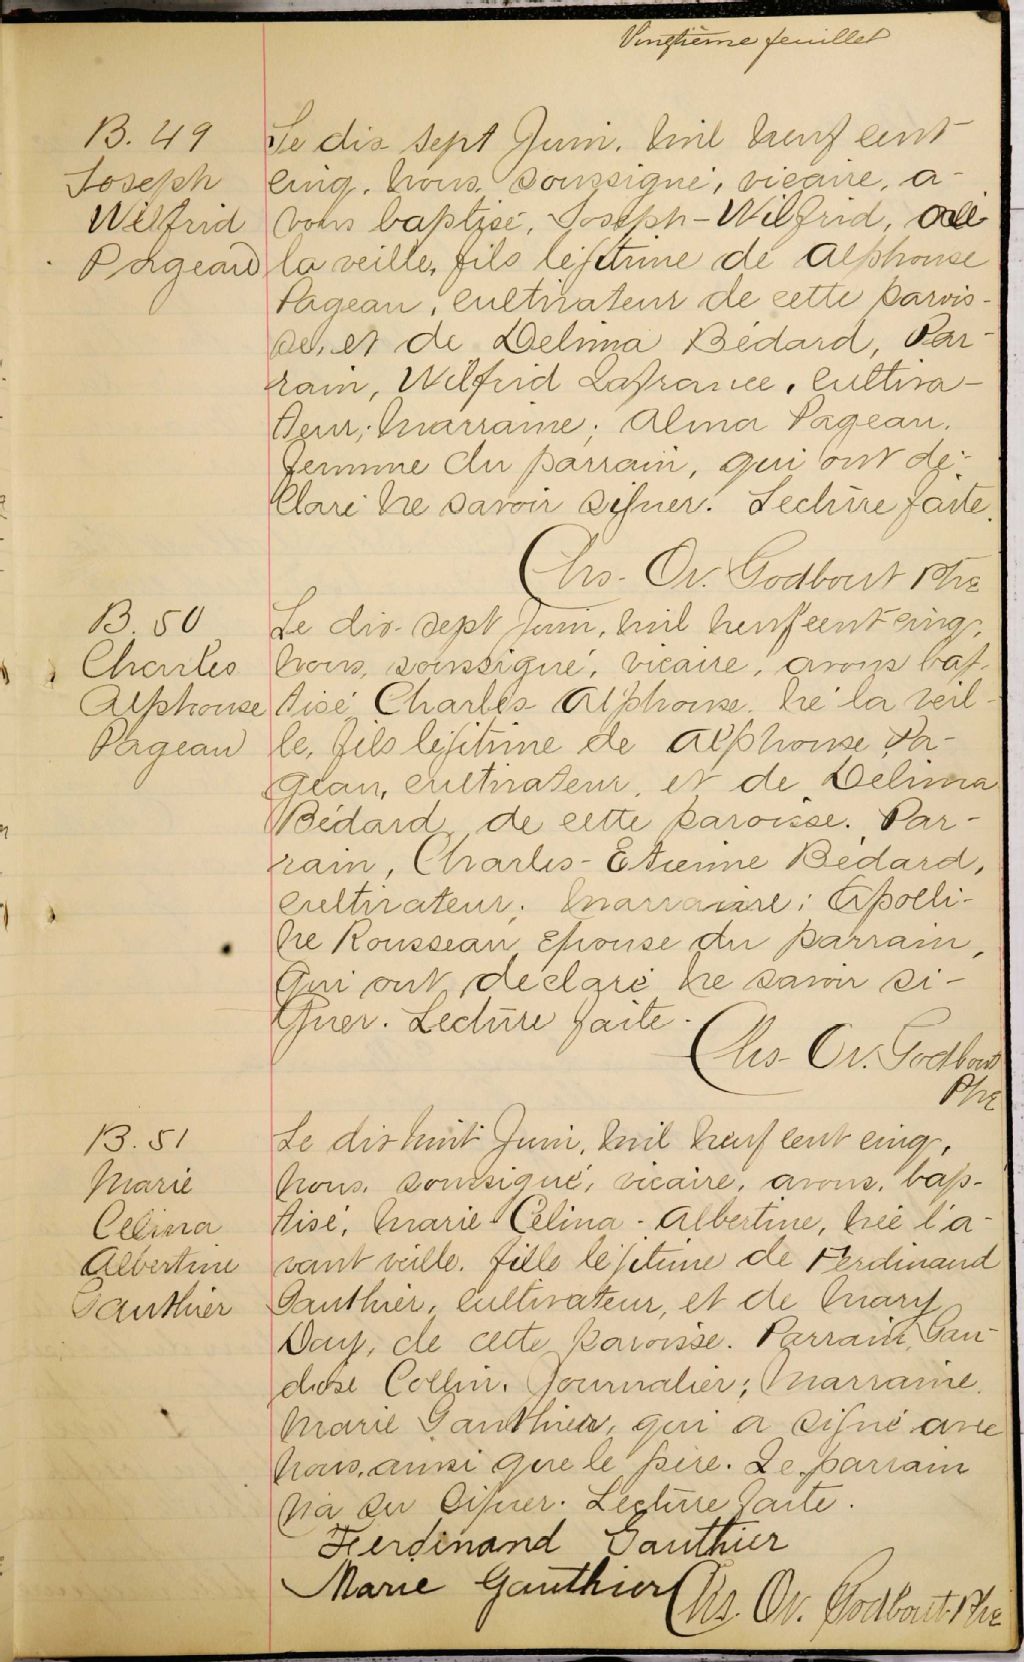 Vingtième feuillet
B. 49
Joseph
Wilfrid
Pageau
Le dix-sept Juin, mil neuf cent
cinq, nous, soussigné, vicaire, a-
vons baptisé, Joseph-Wilfrid, né
la veille, fils légitime de Alphonse
Pageau, cultivateur de cette parois-
se, et de Delima Bédard, Par-
rain, Wilfrid Lafrance, cultiva-
teur; marraine; Alma Pageau,
femme du parrain, qui ont dé-
claré ne savoir signer. Lecture faite.
Chs. Ov. Godbout Ptre
B. 50
Charles
Alphonse
Pageau
Le dix-sept Juin, mil neuf cent cinq,
nous, soussigné, vicaire, avons bap-
tisé Charles Alphonse, né la veil-
le, fils légitime de Alphonse Pa-
geau, cultivateur, et de Délima
Bédard, de cette paroisse. Par-
rain, Charles-Etienne Bédard,
cultivateur; marraine; Apolli-
ne Rousseau, Epouse du parrain,
qui ont déclaré ne savoir si-
gner. Lecture faite.
Chs. Ov. Godbout
Ptre
B. 51
Marie
Celina
Albertine
Gauthier
Le dix huit Juin, mil neuf cent cinq,
nous, soussigné, vicaire, avons, bap-
tisé, Marie-Célina-Albertine, née l'a-
vant veille, fille légitime de Ferdinand
Gauthier, cultivateur, et de Mary
Day, de cette paroisse. Parrain, Gau-
diose Collin, Journalier; Marraine,
Marie Gauthier, qui a signé avec
nous, ainsi que le père. Le parrain
n'a su signer. Lecture faite.
Ferdinand Gauthier
Marie Gauthier Chs. Ov. Godbout Ptre